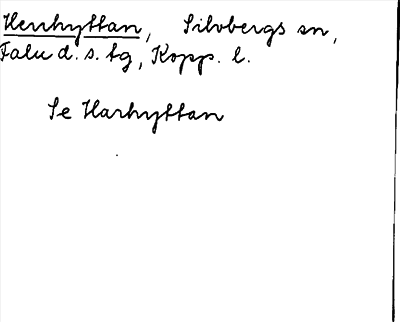 Herrhyttan, Silvbergs sn,
Falu d. s. tg, Kopp. l.
Se Harhyttan